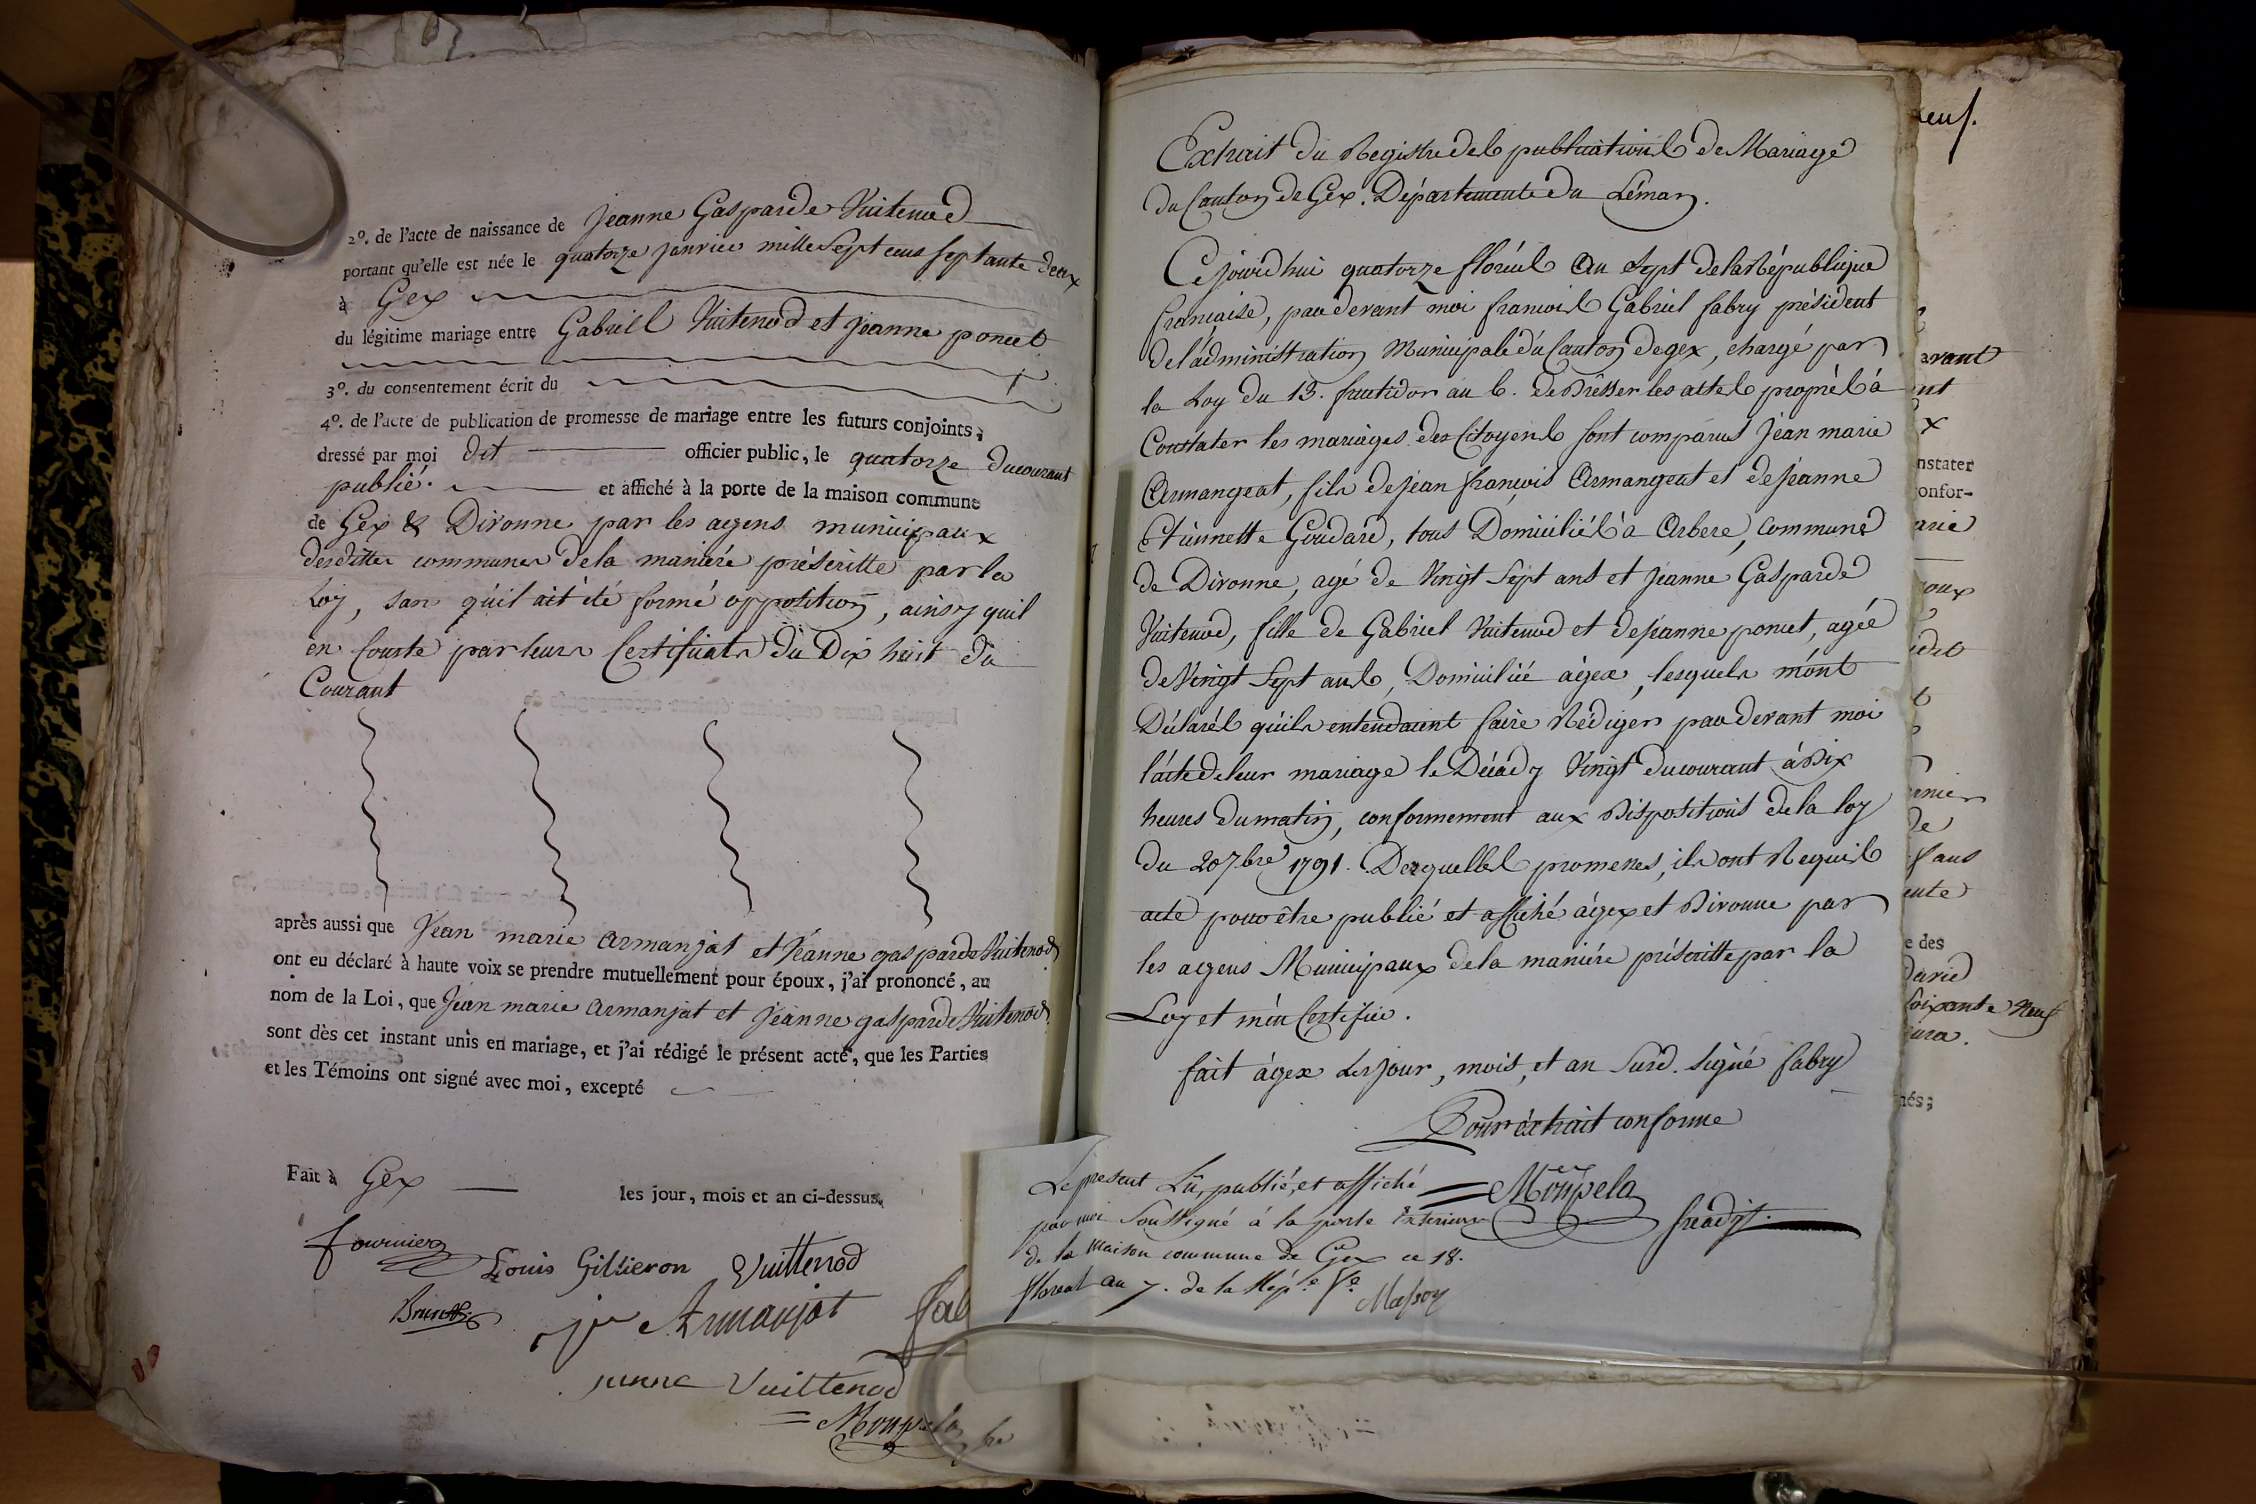 2º. de l'acte de naissance de Jeanne Gasparde Vuitenod
portant qu'elle est née le quatorze janvier mille Sept cens septante deux
à Gex
du légitime mariage entre Gabriell Vuitenod et jeanne poncet
3º. du consentement écrit du
4º. de l'acte de publication de promesse de mariage entre les futurs conjoints,
dressé par moi dit officier public, le quatorze ducourant
publié. et affiché à la porte de la maison commune
de Gex & Divonne par les agens municipaux
desdittes communes de la maniére préscritte par la
Loy, sans quil ait été formé opposition, ainsy quil
en Conste par leurs Certificats du Dix huit du
Courant
après aussi que Jean marie armanjat et Jeanne gasparde Vuitenod
ont eu déclaré à haute voix se prendre mutuellement pour époux, j'ai prononcé, au
nom de la Loi, que Jean marie armanjat et jeanne gasparde Vuitenod
sont dès cet instant unis en mariage, et j'ai rédigé le présent acte, que les Parties
et les Témoins ont signé avec moi, excepté
Fait à Gex les jour, mois et an ci-dessus.
fournier
Louis Gillieron Vuittenod
jm Armanjat fab
Vuittenod
Monpela
Extrait du Registre des publications de Mariage
du Canton de Gex. Départemente du Léman.
Cejourd'hui quatorze floréal an sept de la République
française, pardevant moi françois Gabriel fabry président
de l'administration Municipale du Canton de gex, chargé par
la Loy du 13. fructidor an 6. de Dresser les actes propres à
Constater les mariages des Citoyens sont comparus Jean marie
Armangeat, fils de jean françois Armangeat et de jeanne
Etiennette Goudard, tous Domiciliés à Arbere, commune
de Divonne, agé de Vingt Sept ans et jeanne Gasparde
Vuitenod, fille de Gabriel Vuitenod et de jeanne poncet, agée
de Vingt Sept ans, Domiciliée à gex, lesquels m'ont
Déclarés quils entendaient faire Rédiger par devant moi
l'acte de leur mariage le Décady Vingt du courant à dix
heures du matin, conformement aux Dispositions de la loy
du 20 7bre 1791. Desquelles promesses, ils ont Requis
acte pour être publié et affiché à gex et Divonne par
les agens Municipaux de la maniére préscritte par la
Loy et m'en Certifier.
fait à gex Les jour, mois, et an Susd. signé fabry
Pour éxtrait conforme
Monpela
Le present Lu, publié, et affiché
par moi Soussigné à la porte Exterieure
de la Maison commune de Gex ce 18.
floreal an 7. de la Rép.e f.e
Masson
euf.
avant
nt
x
nstater
onfor-
arie
oux
de
sans
ente
e des
soixante Neuf
jura.
nés;